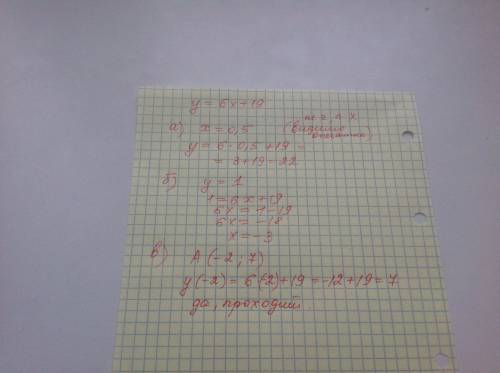 y = 6x + 19
не в, а х
а) x = 0,5 (видимо
опечатка)
y = 6 · 0,5 + 19 =
= 3 + 19 = 22
б) y = 1
1 = 6x + 19
6x = 1 - 19
6x = -18
x = -3
в) A (-2; 7)
y(-2) = 6(-2) + 19 = -12 + 19 = 7
да, проходит.